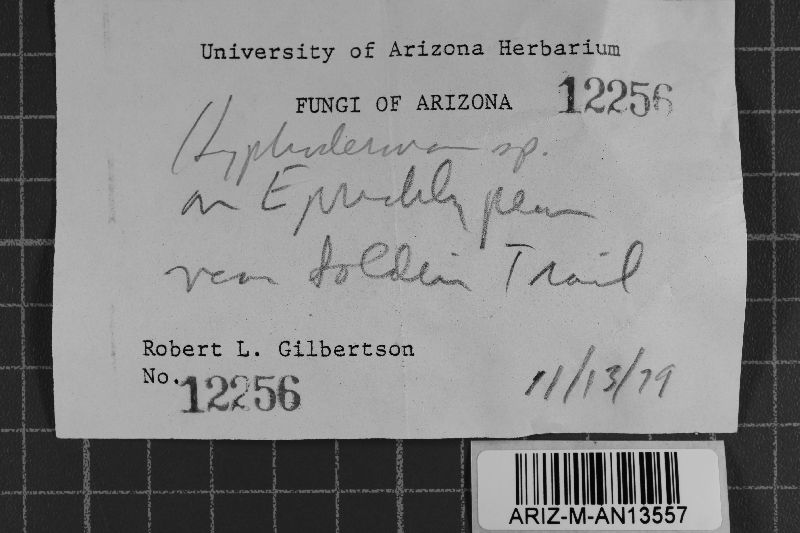 University of Arizona Herbarium
FUNGI OF ARIZONA 12256
Hyphoderma sp.
on E prickly pear
near Soldier Trail
Robert L. Gilbertson
No. 12256 11/13/79
ARIZ-M-AN13557